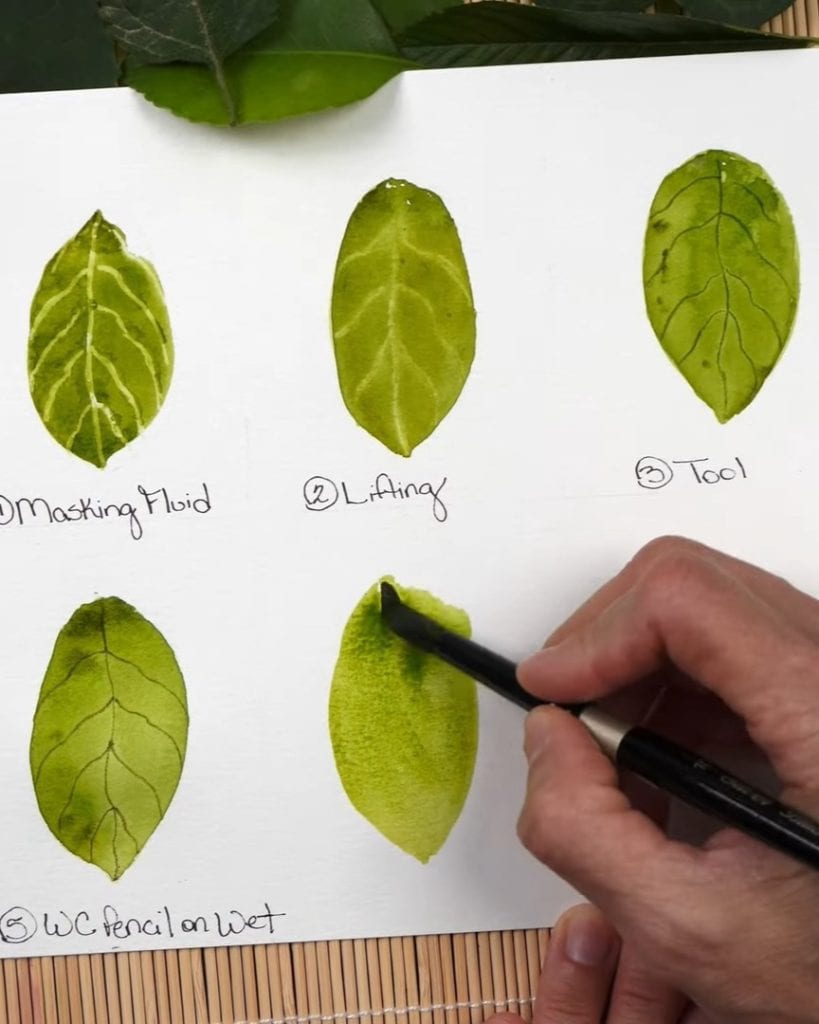 ① Masking Fluid
② Lifting
③ Tool
⑤ WC Pencil on Wet